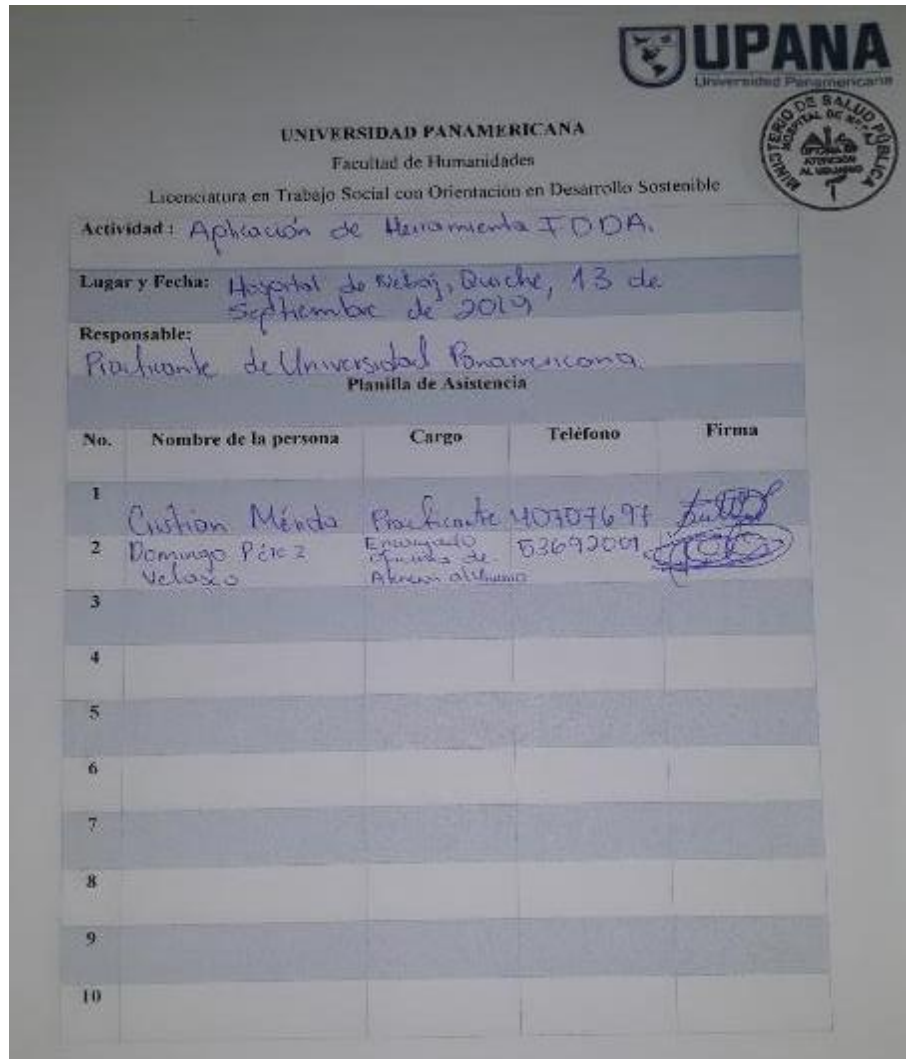 UPANA
Universidad Panamericana
MINISTERIO DE SALUD PÚBLICA
HOSPITAL DE
ATENCIÓN
AL USUARIO
UNIVERSIDAD PANAMERICANA
Facultad de Humanidades
Licenciatura en Trabajo Social con Orientación en Desarrollo Sostenible
Actividad: Aplicación de Herramienta FODA.
Lugar y Fecha: Hospital de Nebaj, Quiche, 13 de
Septiembre de 2019
Responsable:
Practicante de Universidad Panamericana.
Planilla de Asistencia
No. Nombre de la persona Cargo Teléfono Firma
1 Cristian Practicante 40707697
2 Domingo Pérez Encargado 53692009
Velasco de
Atención al Usuario
3
4
5
6
7
8
9
10